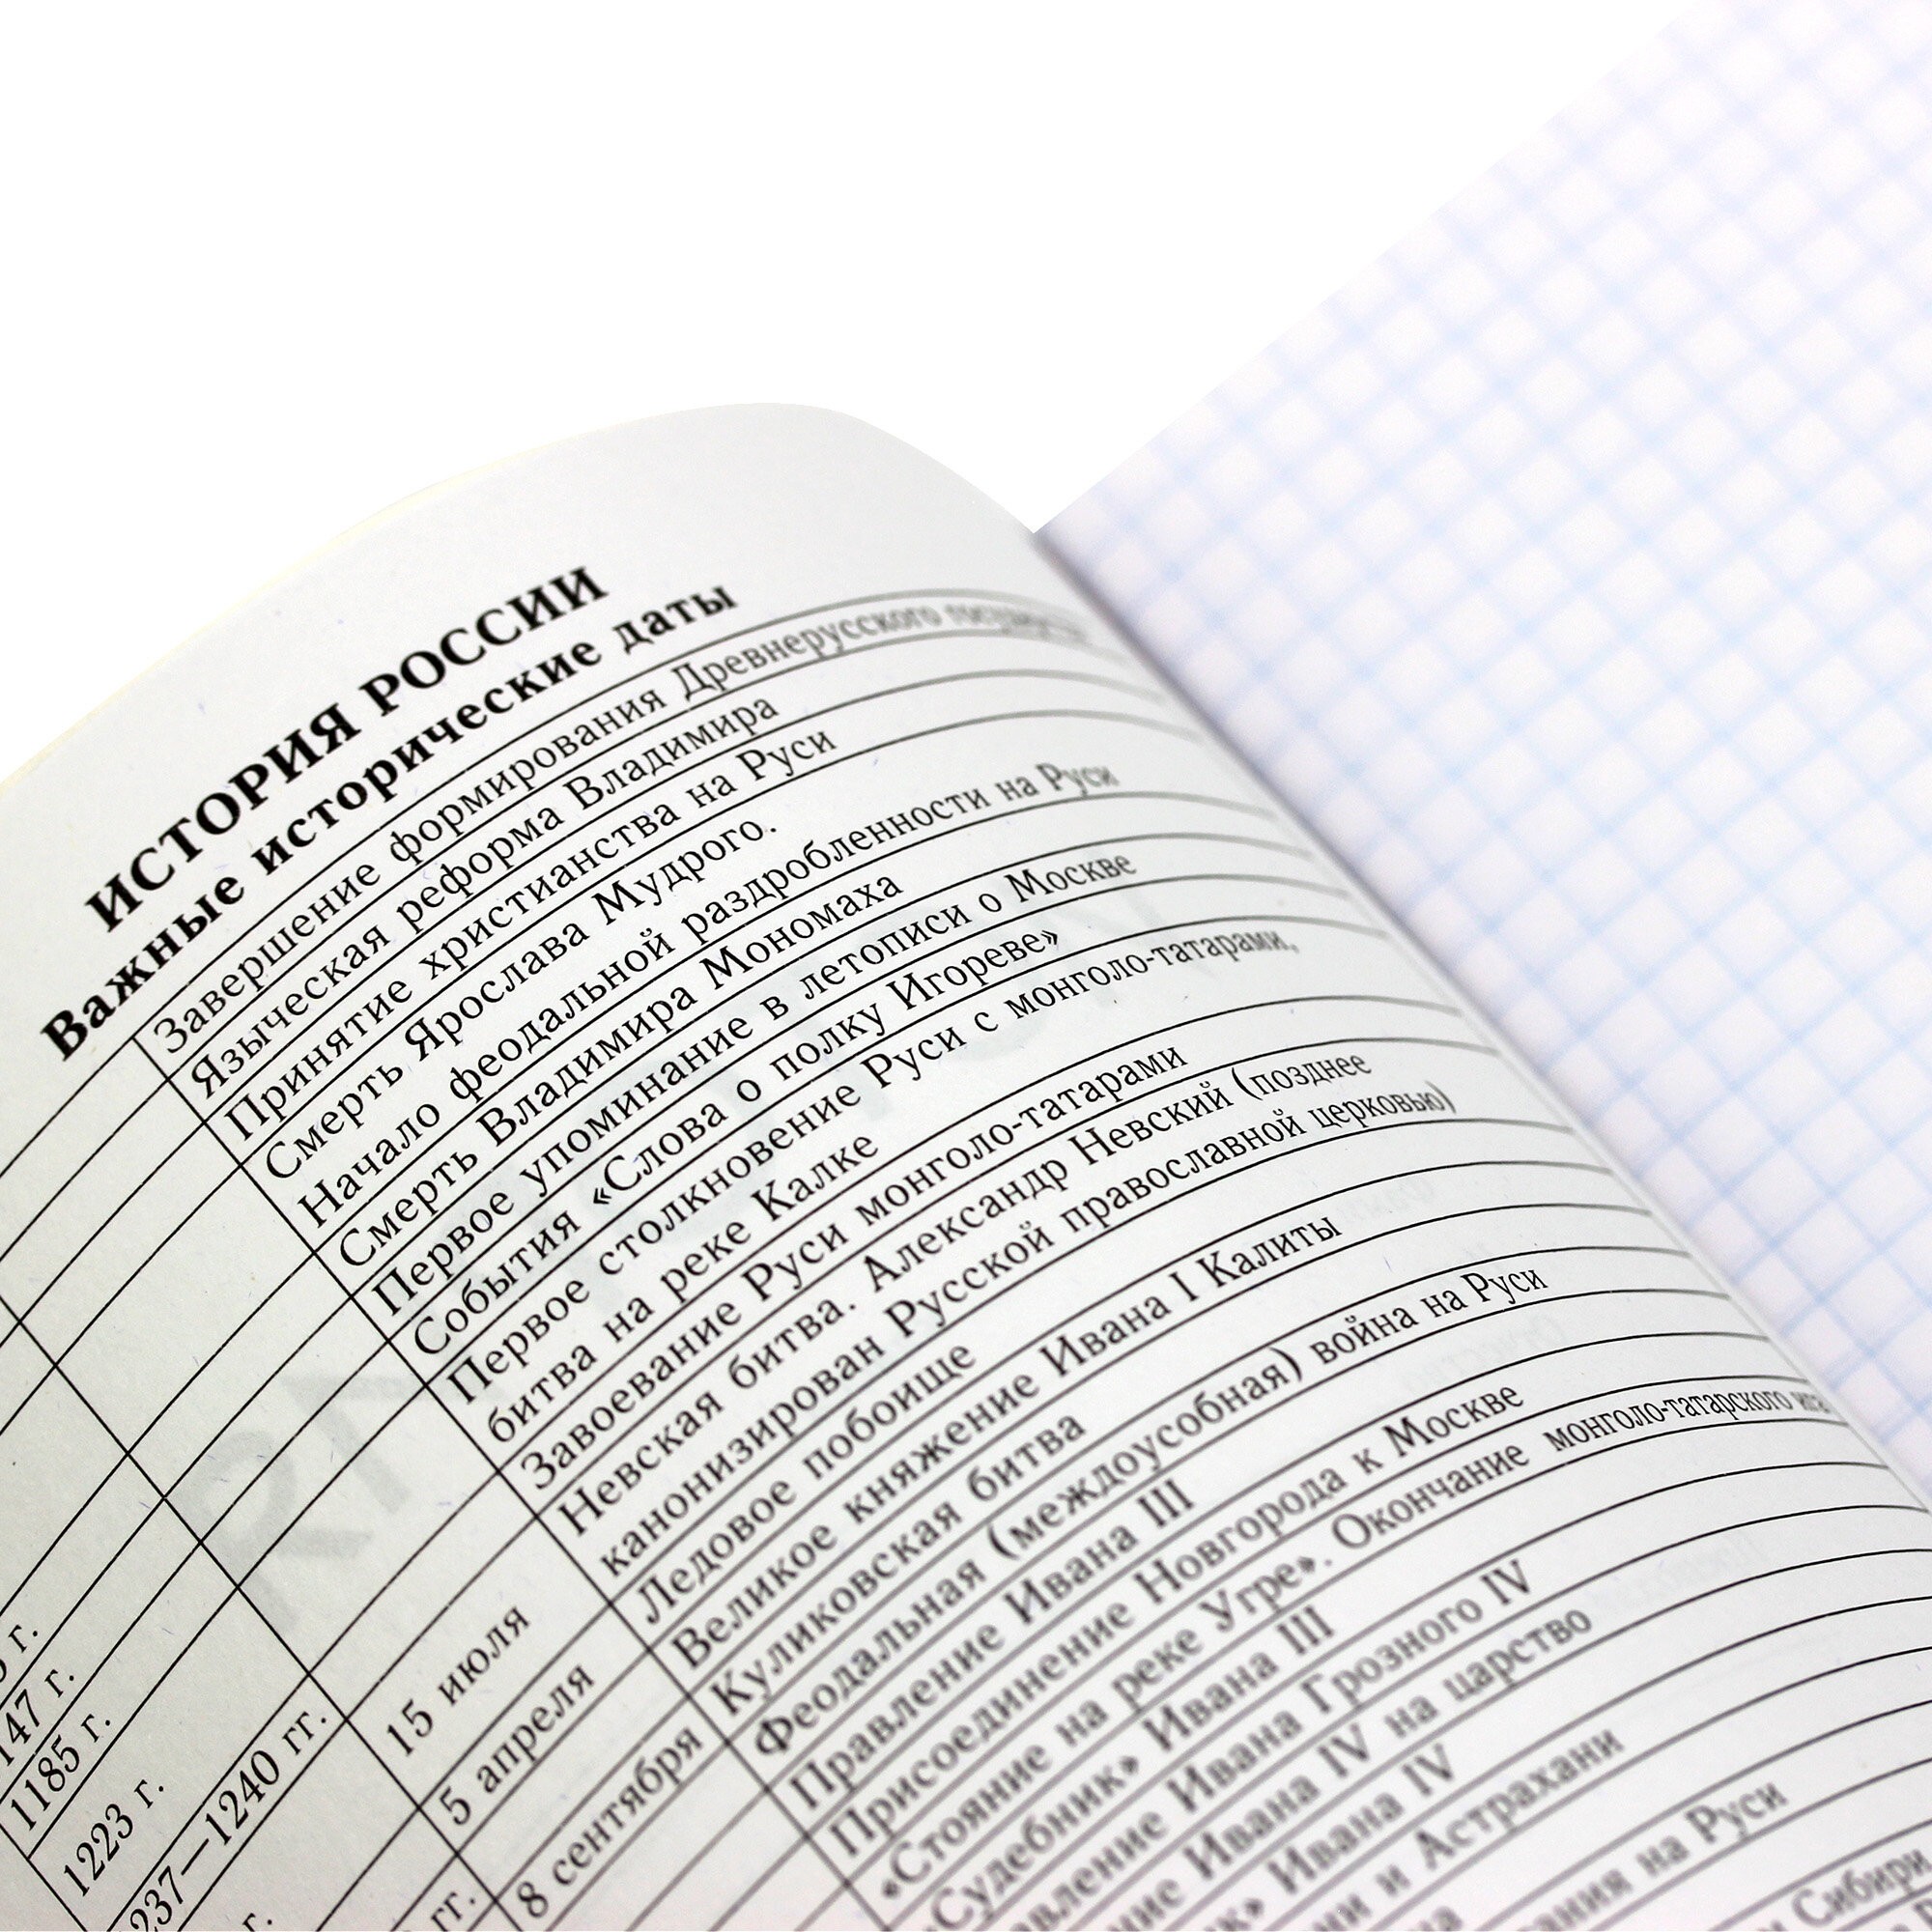 ИСТОРИЯ РОССИИ
Важные исторические даты
Завершение формирования Древнерусского государства
Языческая реформа Владимира
Принятие христианства на Руси
Смерть Ярослава Мудрого.
Начало феодальной раздробленности на Руси
Смерть Владимира Мономаха
147 г. Первое упоминание в летописи о Москве
1185 г. События «Слова о полку Игореве»
1223 г. Первое столкновение Руси с монголо-татарами,
битва на реке Калке
237—1240 гг. Завоевание Руси монголо-татарами
15 июля Невская битва. Александр Невский (позднее
канонизирован Русской православной церковью)
5 апреля Ледовое побоище
гг. Великое княжение Ивана I Калиты
8 сентября Куликовская битва
Феодальная (междоусобная) война на Руси
Правление Ивана III
Присоединение Новгорода к Москве
«Стояние на реке Угре». Окончание монголо-татарского ига
«Судебник» Ивана III
авление Ивана Грозного IV
ние Ивана IV на царство
к» Ивана IV
ни и Астрахани
ания на Руси
Сибири